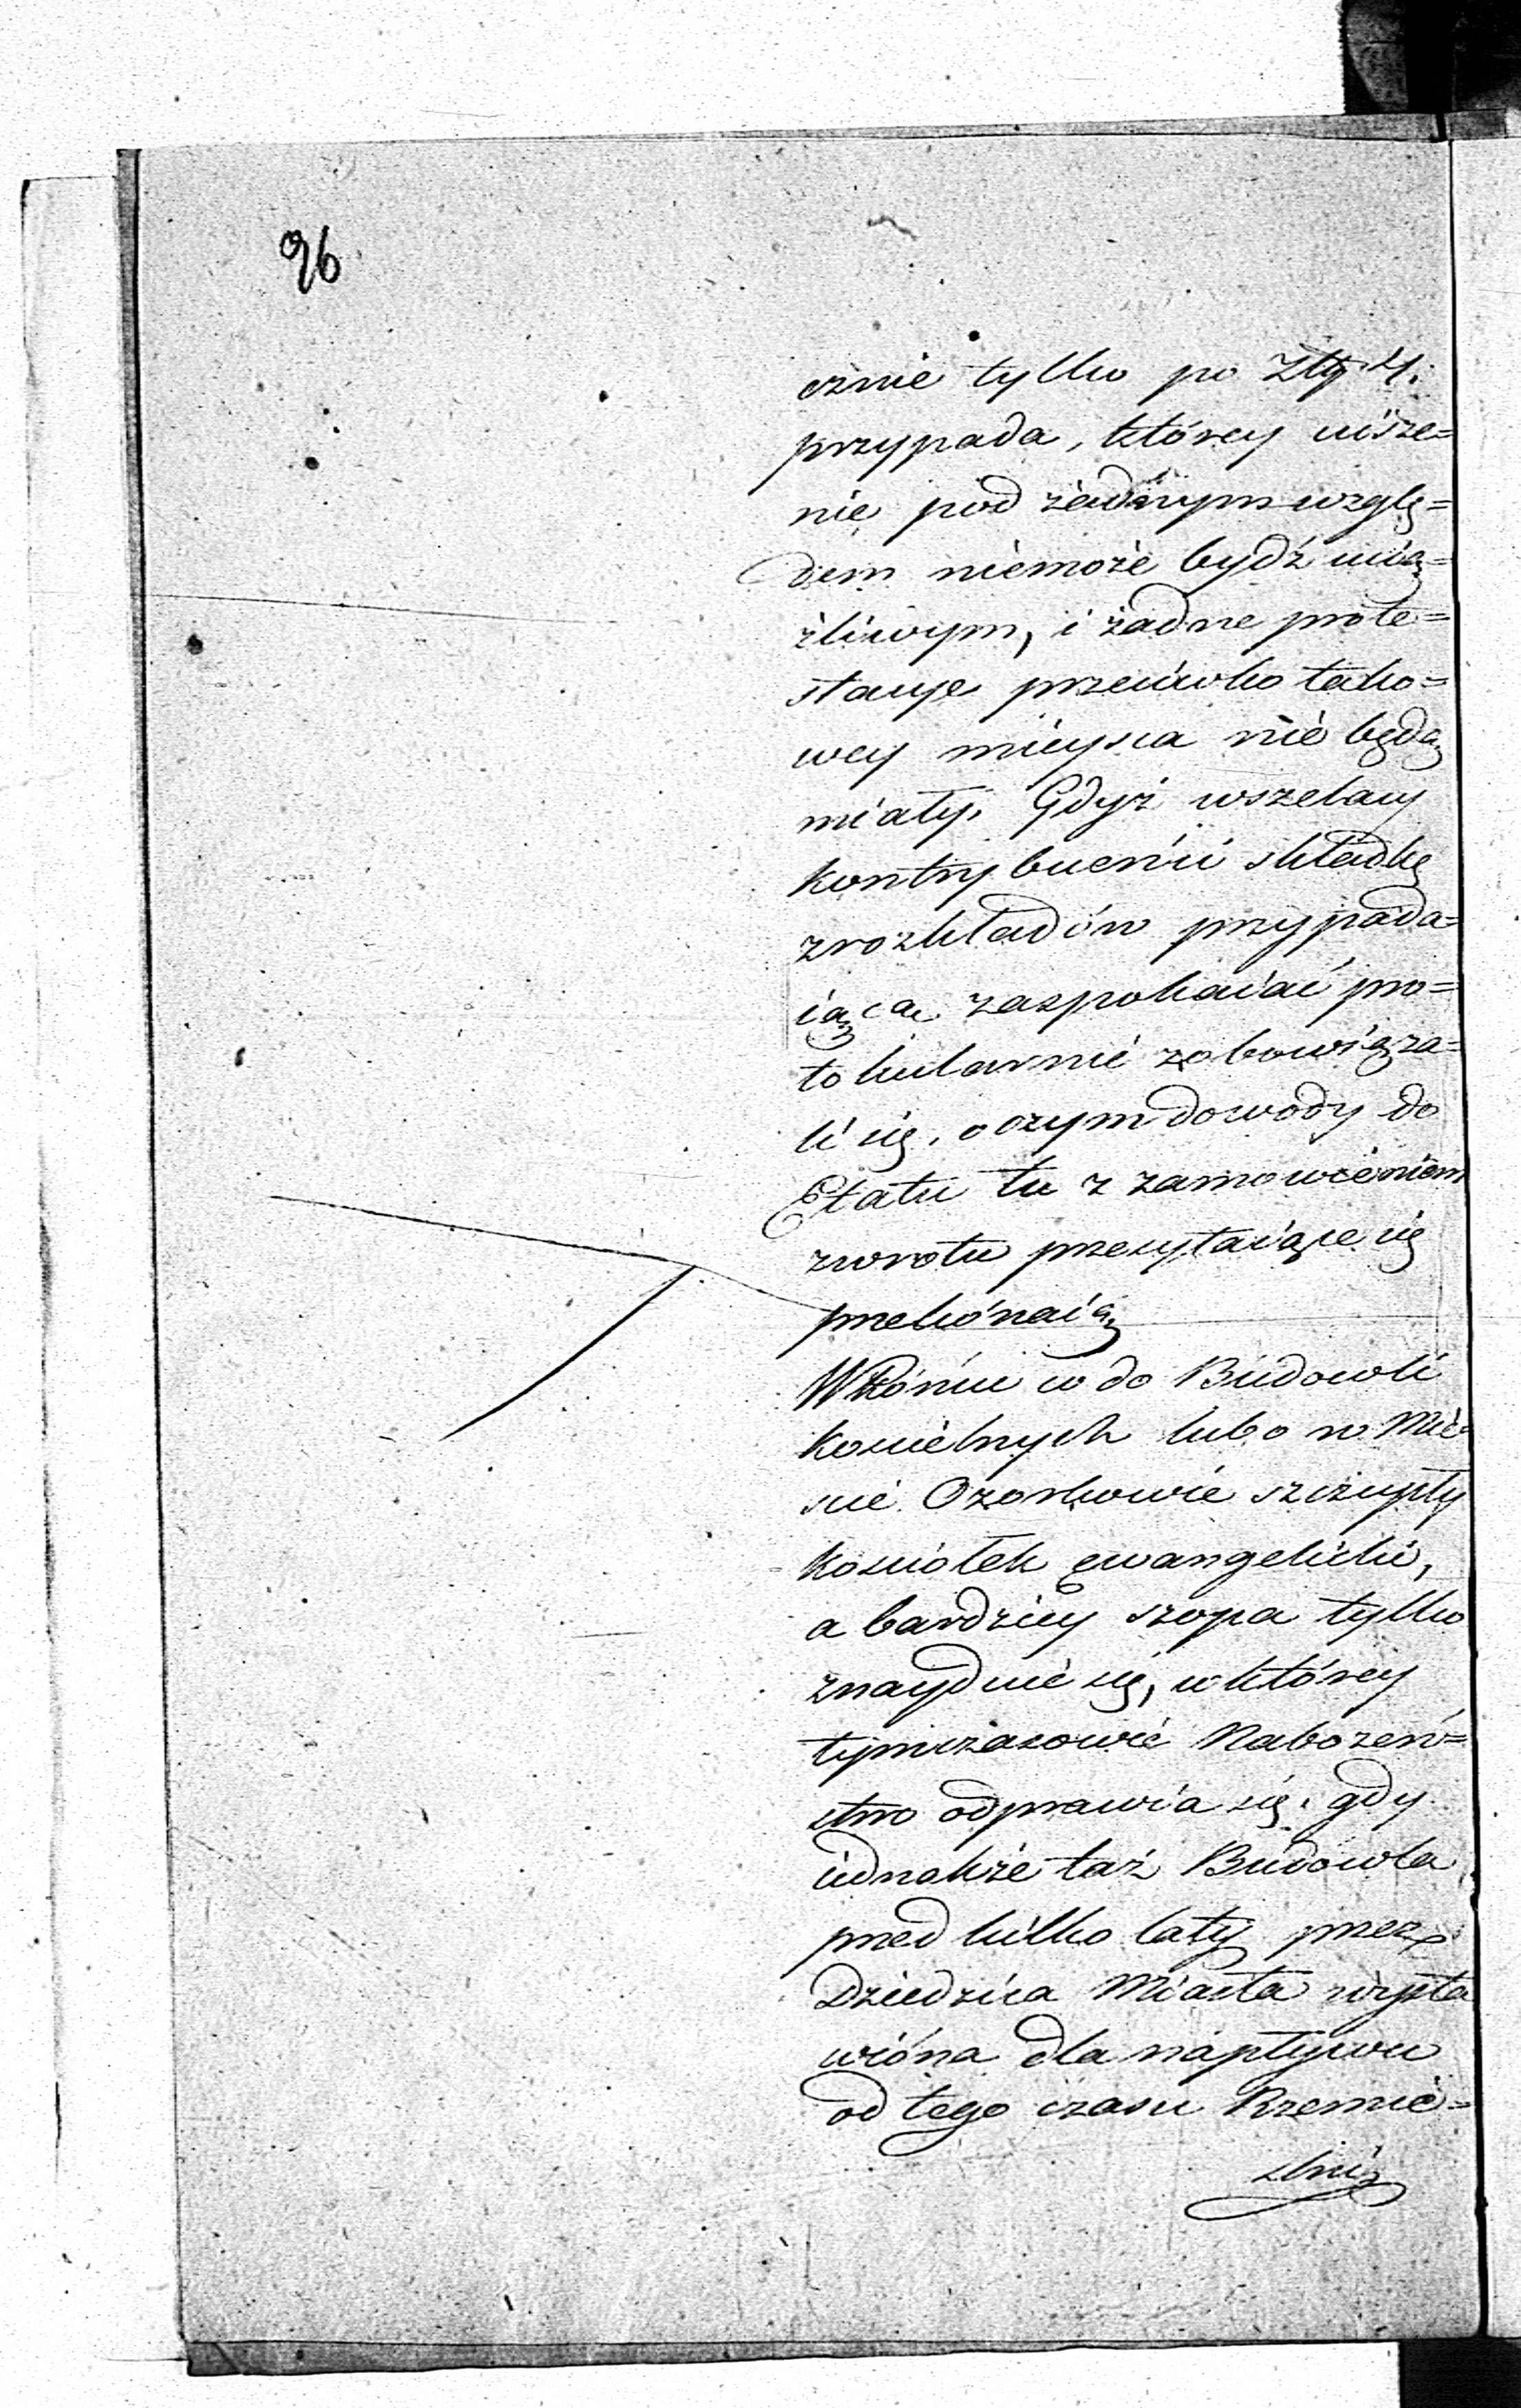 96
cznie tylko po Złp 4.
przypada, którey uisze=
nie pod żadnym wzglę=
dem niemoże bydź ucią=
żliwym, i żadne prote=
stacye przeciwko tako=
wey mieysca nie będą
miały. Gdyż wszelacy
Kontrybuenci składkę
z rozkładów przypada=
iącą zaspokaiać pro=
tokularnie zobowiąza=
li się, o czym dowody do
Etatu tu z zamowieniem
zwrotu przesyłaiące się
przekónaią
W Róniu w do Budowli
Kościelnych lubo w Mie
ście Ozorkowie szczupły
Kościołek ewangelicki,
a bardziey szopa tylko
znayduie się, w którey
tymczasowie Nabożeń=
stwo odprawia się, gdy
iednakże taż Budowla
przed kilko laty przez
Dziedzica Miasta wysta
wióna dla napływu
od tego czasu Rzemie=
ślni